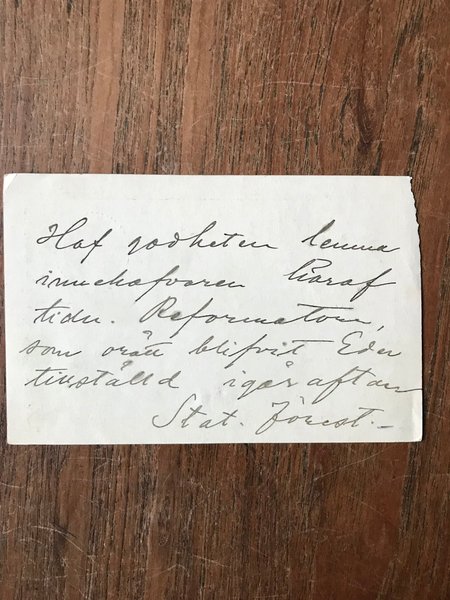 Haf godheten lemna
innehafvaren häraf
tidn. Reformatorn,
som orätt blifvit Eder
tillställd igår afton
Stat. Förest.–